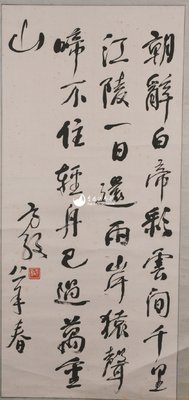 朝辭白帝彩雲間千里
江陵一日還兩岸猿聲
啼不住輕舟已過萬重
山
方毅
年春